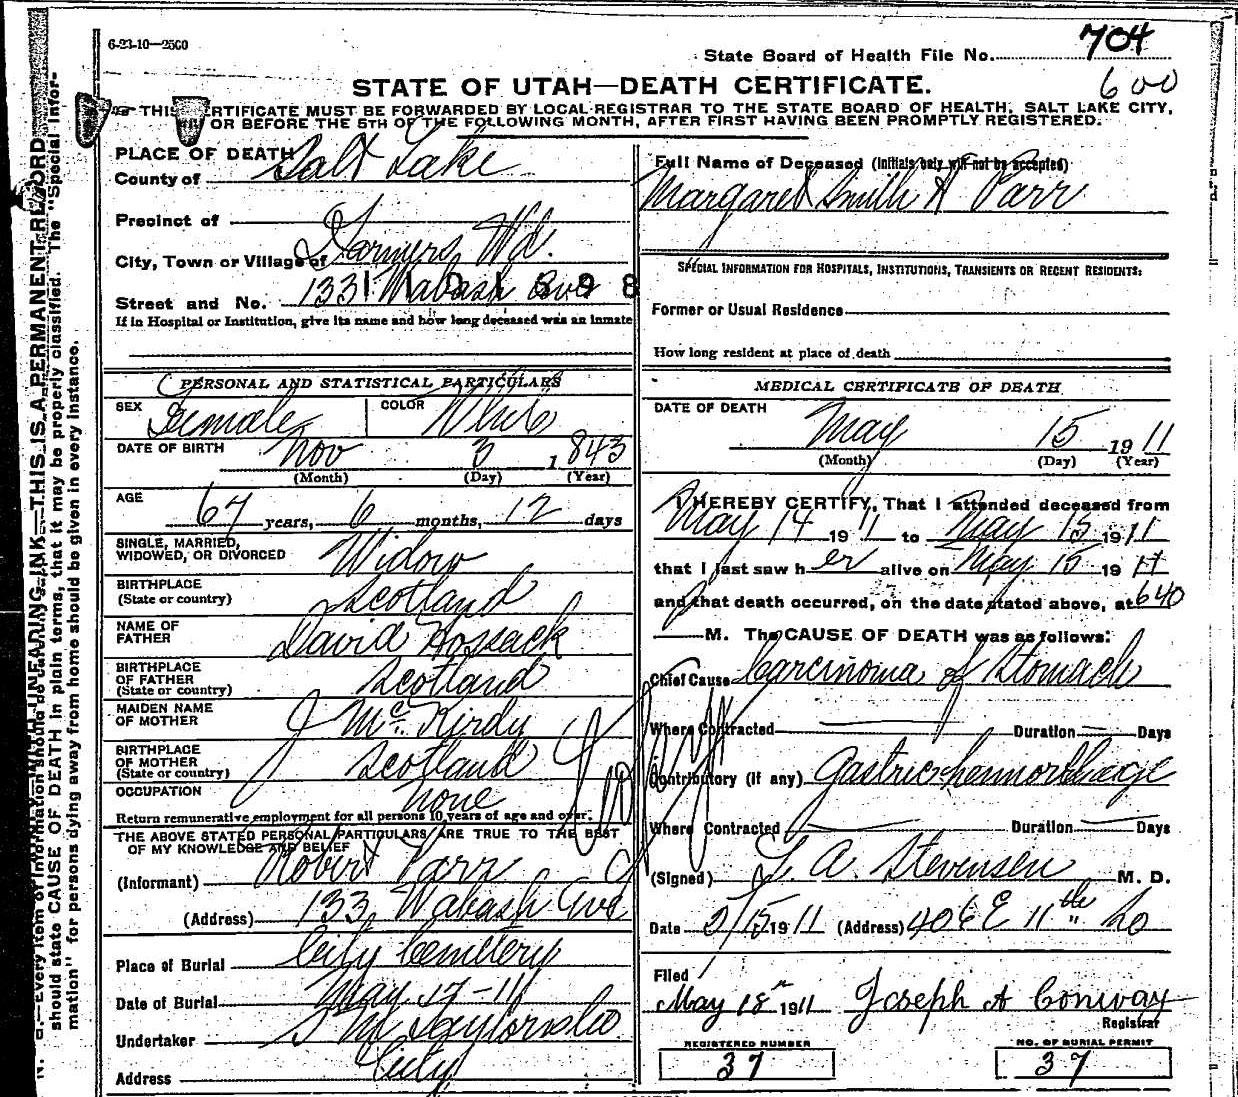 6-23-10—2500
State Board of Health File No. 704
600
STATE OF UTAH—DEATH CERTIFICATE.
THIS CERTIFICATE MUST BE FORWARDED BY LOCAL REGISTRAR TO THE STATE BOARD OF HEALTH, SALT LAKE CITY,
OR BEFORE THE 5TH OF THE FOLLOWING MONTH, AFTER FIRST HAVING BEEN PROMPTLY REGISTERED.
PLACE OF DEATH
County of Salt Lake
Precinct of
City, Town or Village of Farmers Wd.
Street and No. 133 Wabash Ave
1101598
If in Hospital or Institution, give its name and how long deceased was an inmate
Full Name of Deceased (Initials only will not be accepted)
Margaret Smith H Parr
SPECIAL INFORMATION FOR HOSPITALS, INSTITUTIONS, TRANSIENTS OR RECENT RESIDENTS:
Former or Usual Residence
How long resident at place of death
PERSONAL AND STATISTICAL PARTICULARS
SEX Female COLOR White
DATE OF BIRTH Nov 3 1843
(Month) (Day) (Year)
AGE 67 years, 6 months, 12 days
SINGLE, MARRIED,
WIDOWED, OR DIVORCED Widow
BIRTHPLACE
(State or country) Scotland
NAME OF
FATHER David Hossack
BIRTHPLACE
OF FATHER
(State or country) Scotland
MAIDEN NAME
OF MOTHER J McKirdy
BIRTHPLACE
OF MOTHER
(State or country) Scotland
OCCUPATION None
Return remunerative employment for all persons 10 years of age and over.
THE ABOVE STATED PERSONAL PARTICULARS ARE TRUE TO THE BEST
OF MY KNOWLEDGE AND BELIEF
(Informant) Robert Parr
(Address) 133 Wabash Ave
Place of Burial City Cemetery
Date of Burial May 17-11
Undertaker S M Taylor & Co
Address City
MEDICAL CERTIFICATE OF DEATH
DATE OF DEATH
May 15 1911
(Month) (Day) (Year)
I HEREBY CERTIFY, That I attended deceased from
May 14 1911 to May 15 1911
that I last saw her alive on May 15 1911
and that death occurred, on the date stated above, at 640
M. The CAUSE OF DEATH was as follows:
Chief Cause Carcinoma of Stomach
Where Contracted Duration Days
Contributory (if any) Gastric hemorrhage
Where Contracted Duration Days
(Signed) A. Stevensen M. D.
Date 5/15 1911 (Address) 406 E 11th So
Filed
May 18" 1911 Joseph A Conway
Registrar
REGISTERED NUMBER
37
NO. OF BURIAL PERMIT
37
THIS IS A PERMANENT RECORD
N. B.—Every item of information should be
should state CAUSE OF DEATH in plain terms, that it may be properly classified. The "Special Infor-
mation" for persons dying away from home should be given in every instance.